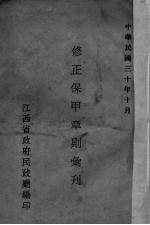 中華民國三十年十月
修正保甲章則彙刊
江西省政府民政廳編印